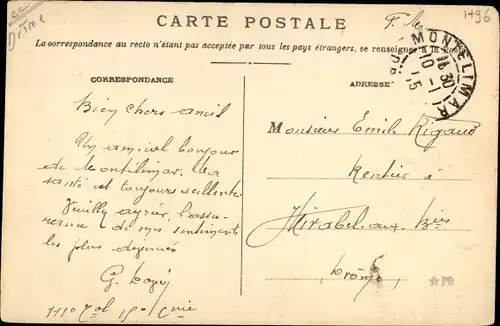 Drôme
CARTE POSTALE
F. M.
1496
La correspondance au recto n'étant pas acceptée par tous les pays étrangers, se renseigner à la Poste
MONTELIMAR
16 30
10 - 1
15
CORRESPONDANCE
ADRESSE
Bien chers amis
Un amical bonjour
de Montélimar. Ma
santé est toujours excellente.
Veuillez agréer, l'assu-
rance de mes sentiments
les plus dévoués
G.
111e 15e Cnie
Monsieur Emile Rigaud
Rentier à
Mirabel-aux-Bies
Drôme
PB